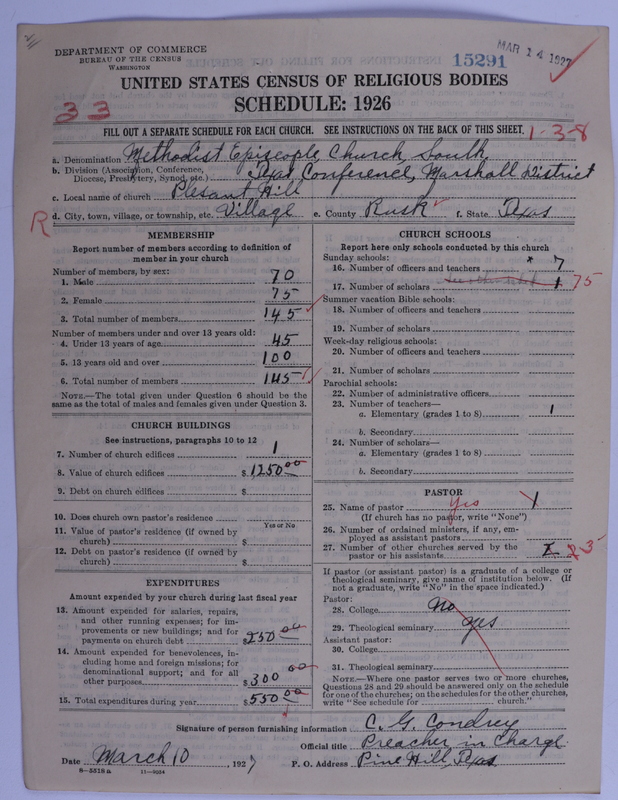 DEPARTMENT OF COMMERCE
BUREAU OF THE CENSUS
WASHINGTON
15291
MAR 14 1927
UNITED STATES CENSUS OF RELIGIOUS BODIES
SCHEDULE: 1926
33
FILL OUT A SEPARATE SCHEDULE FOR EACH CHURCH. SEE INSTRUCTIONS ON THE BACK OF THIS SHEET.
1-3-8
a. Denomination Methodist Episcople Church, South
b. Division (Association, Conference, Diocese, Presbytery, Synod, etc.) Texas Conference, Marshall District
c. Local name of church Plesant Hill
R
d. City, town, village, or township, etc. Village e. County Rusk f. State Texas
MEMBERSHIP
Report number of members according to definition of
member in your church
Number of members, by sex:
1. Male 70
2. Female 75
3. Total number of members 145
Number of members under and over 13 years old:
4. Under 13 years of age 45
5. 13 years old and over 100
6. Total number of members 145
NOTE.—The total given under Question 6 should be
same as the total of males and females given under Question 3.
CHURCH BUILDINGS
See instructions, paragraphs 10 to 12
7. Number of church edifices 1
8. Value of church edifices $1250 00
9. Debt on church edifices $
10. Does church own pastor's residence
Yes or No
11. Value of pastor's residence (if owned by
church) $
12. Debt on pastor's residence (if owned by
church) $
EXPENDITURES
Amount expended by your church during last fiscal year
13. Amount expended for salaries, repairs,
and other running expenses; for im-
provements or new buildings; and for
payments on church debt $250 00
14. Amount expended for benevolences, in-
cluding home and foreign missions; for
denominational support; and for all
other purposes $300 00
15. Total expenditures during year $550 00
CHURCH SCHOOLS
Report here only schools conducted by this church
Sunday schools:
16. Number of officers and teachers * 7
17. Number of scholars 1 75
Summer vacation Bible schools:
18. Number of officers and teachers
19. Number of scholars
Week-day religious schools:
20. Number of officers and teachers
21. Number of scholars
Parochial schools:
22. Number of administrative officers
23. Number of teachers—
a. Elementary (grades 1 to 8) 1
b. Secondary
24. Number of scholars—
a. Elementary (grades 1 to 8)
b. Secondary
PASTOR
25. Name of pastor yes 1
(If church has no pastor, write "None")
26. Number of ordained ministers, if any, em-
ployed as assistant pastors
27. Number of other churches served by the
pastor or his assistants 3
If pastor (or assistant pastor) is a graduate of a college or
theological seminary, give name of institution below. (If
not a graduate, write "No" in the space indicated.)
Pastor:
28. College No
29. Theological seminary yes
Assistant pastor:
30. College
31. Theological seminary
NOTE.—Where one pastor serves two or more churches,
Questions 28 and 29 should be answered only on the schedule
for one of the churches; on the schedules for the other churches,
write "See schedule for church."
Signature of person furnishing information C. G. Condrey
Official title Preacher in Charge
Date March 10, 1927 P. O. Address Pine Hill, Texas
8-5518 a 11-9024